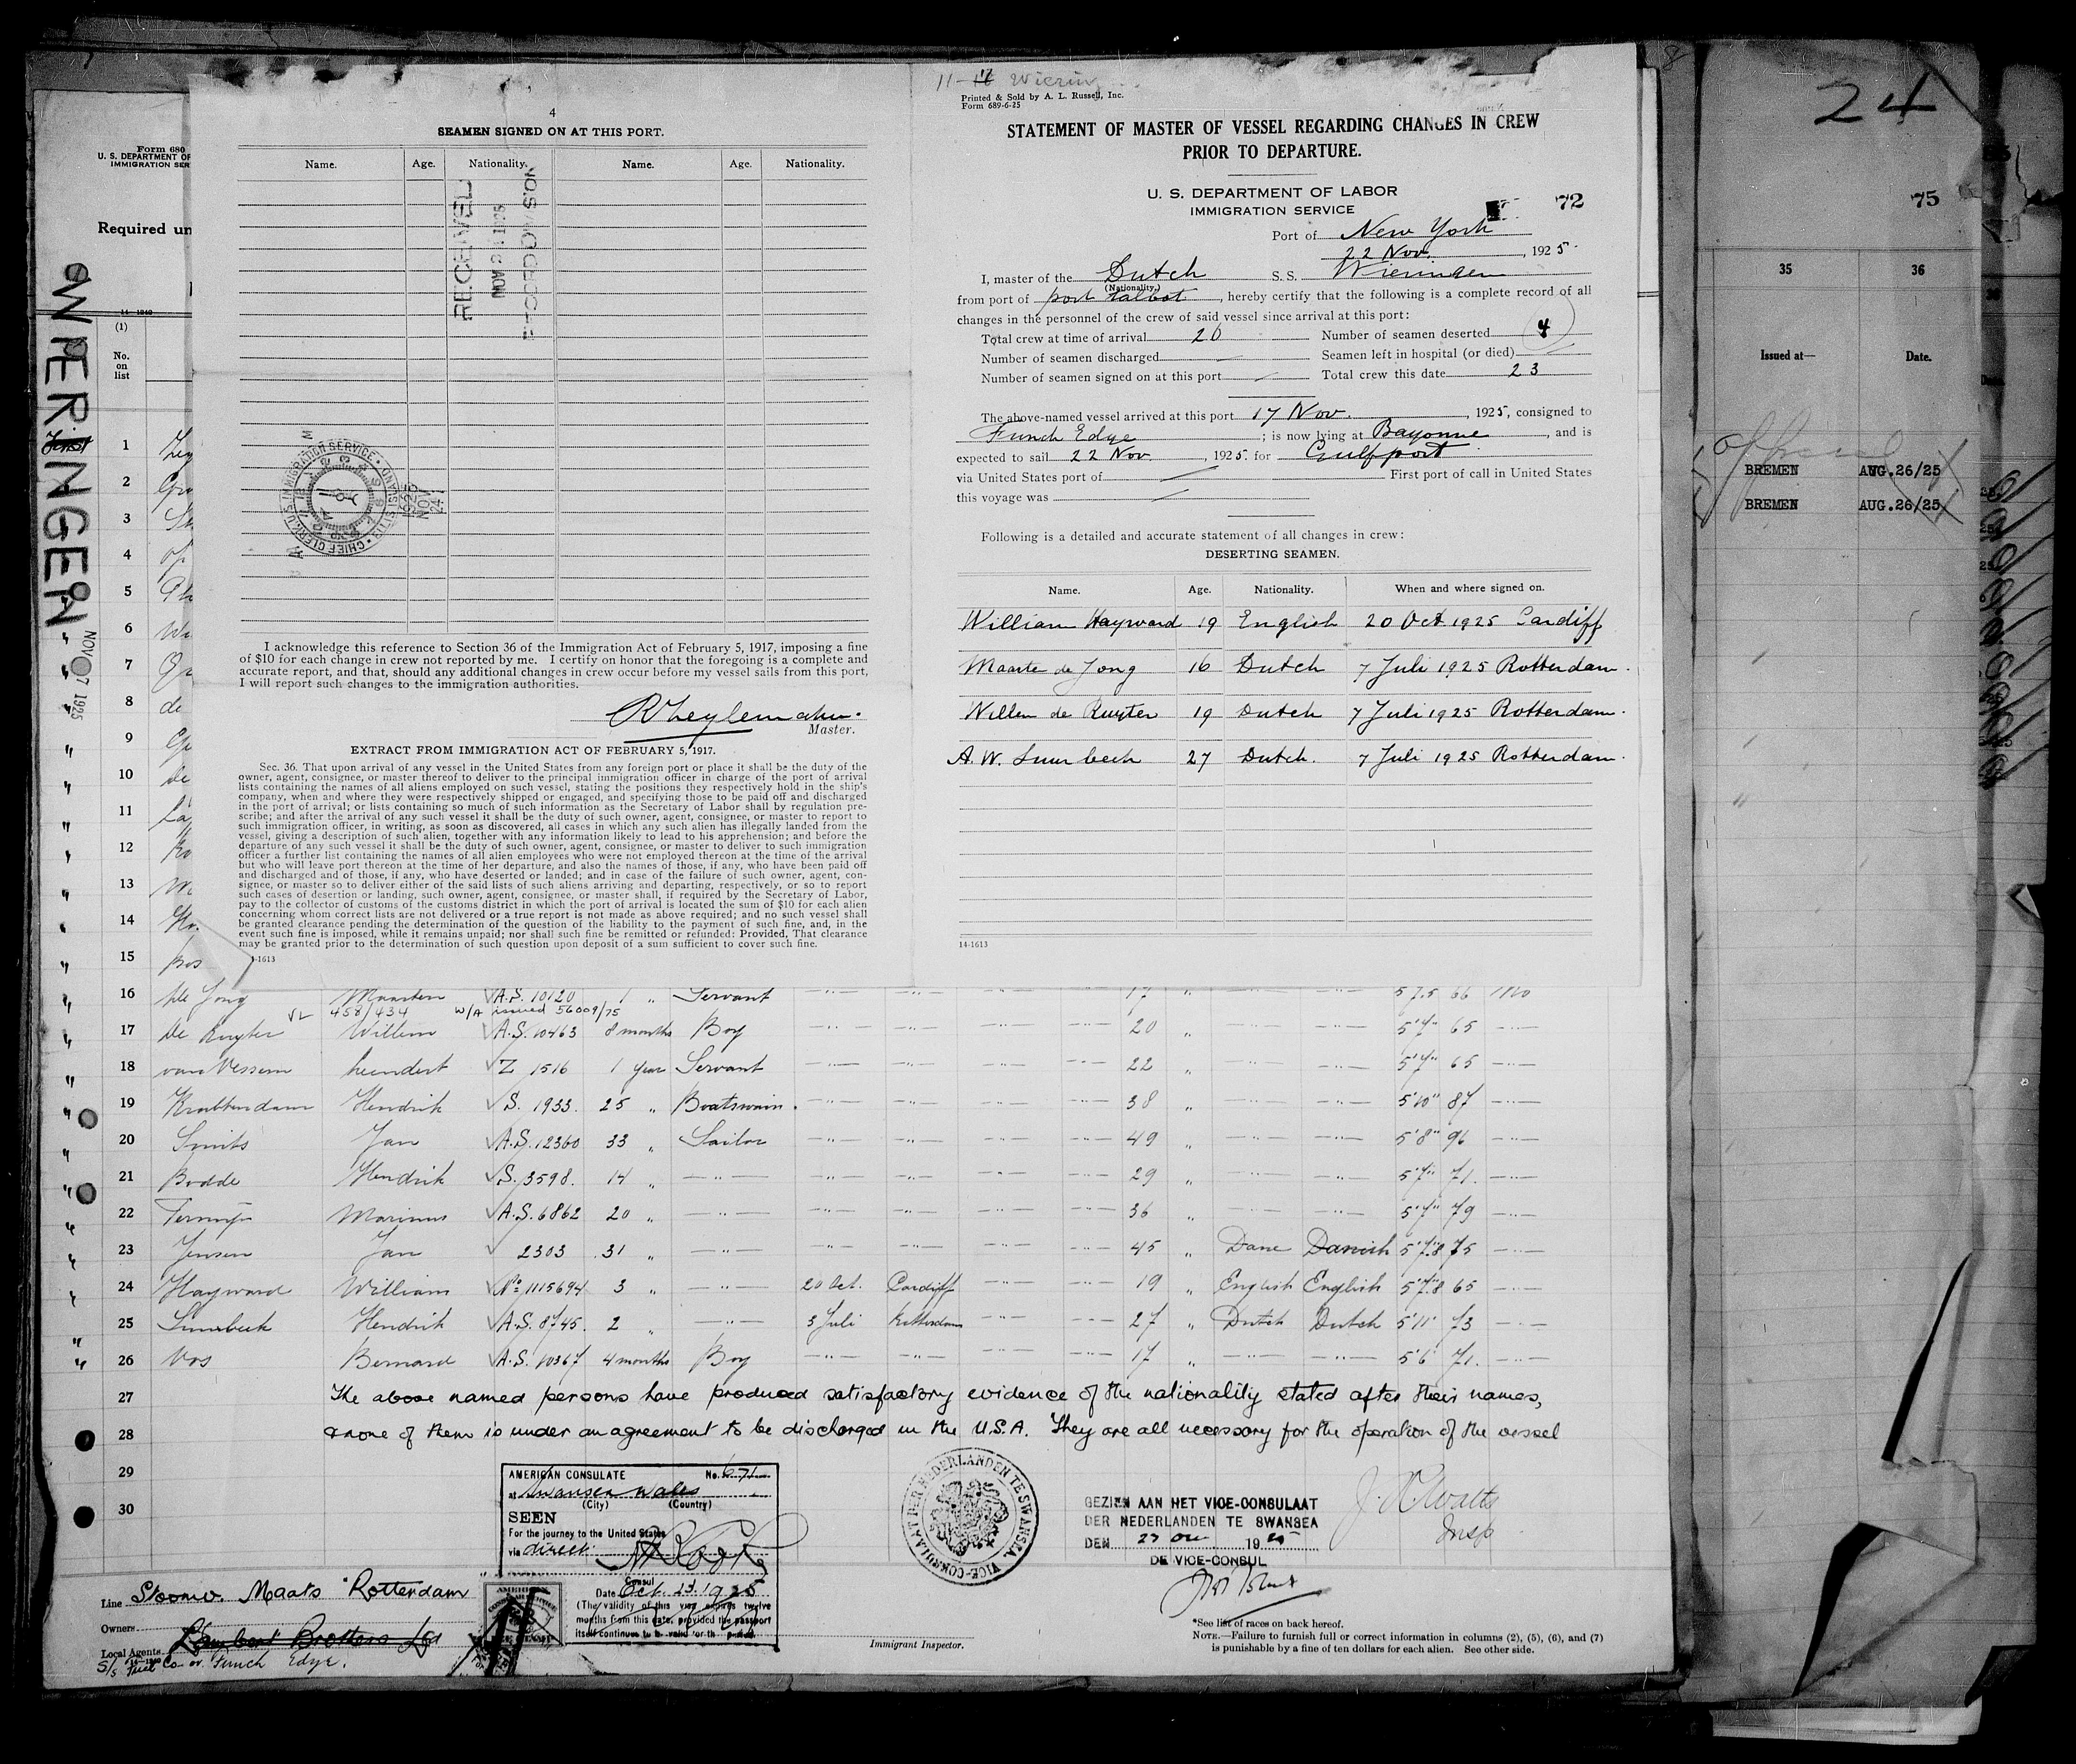 11-17 Wierin
8
24
Form 680
U. S. DEPARTMENT OF
IMMIGRATION SER
Required un
14-1240
(1)
No.
on
list
WIERINGEN
NOV 7 1925
4
SEAMEN SIGNED ON AT THIS PORT.
Name. Age. Nationality. Name. Age. Nationality.
RECEIVED
CHIEF CLERK U.S. IMMIGRATION SERVICE
1925
NOV
24
I acknowledge this reference to Section 36 of the Immigration Act of February 5, 1917, imposing a fine
of $10 for each change in crew not reported by me. I certify on honor that the foregoing is a complete and
accurate report, and that, should any additional changes in crew occur before my vessel sails from this port,
I will report such changes to the immigration authorities.
Master.
EXTRACT FROM IMMIGRATION ACT OF FEBRUARY 5, 1917.
Sec. 36. That upon arrival of any vessel in the United States from any foreign port or place it shall be the duty of the
owner, agent, consignee, or master thereof to deliver to the principal immigration officer in charge of the port of arrival
lists containing the names of all aliens employed on such vessel, stating the positions they respectively hold in the ship's
company, when and where they were respectively shipped or engaged, and specifying those to be paid off and discharged
in the port of arrival; or lists containing so much of such information as the Secretary of Labor shall by regulation pre-
scribe; and after the arrival of any such vessel it shall be the duty of such owner, agent, consignee, or master to report to
such immigration officer, in writing, as soon as discovered, all cases in which any such alien has illegally landed from the
vessel, giving a description of such alien, together with any information likely to lead to his apprehension; and before the
departure of any such vessel it shall be the duty of such owner, agent, consignee, or master to deliver to such immigration
officer a further list containing the names of all alien employees who were not employed thereon at the time of the arrival
but who will leave port thereon at the time of her departure, and also the names of those, if any, who have been paid off
and discharged and of those, if any, who have deserted or landed; and in case of the failure of such owner, agent, con-
signee, or master so to deliver either of the said lists of such aliens arriving and departing, respectively, or so to report
such cases of desertion or landing, such owner, agent, consignee, or master shall, if required by the Secretary of Labor,
pay to the collector of customs of the customs district in which the port of arrival is located the sum of $10 for each alien
concerning whom correct lists are not delivered or a true report is not made as above required; and no such vessel shall
be granted clearance pending the determination of the question of the liability to the payment of such fine, and, in the
event such fine is imposed, while it remains unpaid; nor shall such fine be remitted or refunded: Provided, That clearance
may be granted prior to the determination of such question upon deposit of a sum sufficient to cover such fine.
-1613
Printed & Sold by A. L. Russell, Inc.
Form 689-6-25
STATEMENT OF MASTER OF VESSEL REGARDING CHANGES IN CREW
PRIOR TO DEPARTURE.
U. S. DEPARTMENT OF LABOR
IMMIGRATION SERVICE
72
Port of New York
22 Nov., 1925.
I, master of the Dutch S. S. Wieringen
(Nationality.)
from port of port talbot, hereby certify that the following is a complete record of all
changes in the personnel of the crew of said vessel since arrival at this port:
Total crew at time of arrival 26 Number of seamen deserted 4
Number of seamen discharged — Seamen left in hospital (or died) —
Number of seamen signed on at this port — Total crew this date 23
The above-named vessel arrived at this port 17 Nov., 1925, consigned to
Funch Edye; is now lying at Bayonne, and is
expected to sail 22 Nov., 1925. for Gulfport.
via United States port of — First port of call in United States
this voyage was —
Following is a detailed and accurate statement of all changes in crew:
DESERTING SEAMEN.
Name. Age. Nationality. When and where signed on.
William Hayward 19 English 20 Oct 1925 Cardiff
Maarte de Jong 16 Dutch 7 Juli 1925 Rotterdam.
Willem de Ruyter 19 Dutch 7 Juli 1925 Rotterdam.
A. W. 27 Dutch. 7 Juli 1925 Rotterdam.
14-1613
75
35 36
Issued at— Date.
BREMEN AUG.26/25
BREMEN AUG.26/25
1
2
3
4
5
6
7
8 de
9
10 de
11
12
13
14
15
16 de Jong Maarten A.S. 10120 1 " Servant 17 " 5 7.5 66
458/434 W/A issued 56009/75
17 de Ruyter Willem A.S. 10463 8 months Boy 20 " 5'7" 65
18 van Vessem Leendert Z 1516 1 year Servant 22 " 5'7" 65
19 Krabbendam Hendrik S. 1933. 25 " Boatswain. 38 " 5'10" 87
20 Smits Jan A.S. 12360 33 " Sailor 49 " 5'8" 96
21 Bodde Hendrik S. 3598. 14 " 29 " 5'7" 71.
22 Marinus A.S. 6862 20 " 36 " 5'7" 79
23 Jensen Jan 2303 31 " 45 " Dane Danish 5'7.8 75
24 Hayward William No 1115694 3 " 20 Oct. Cardiff 19 " English English 5'7.8 65
25 Hendrik A.S. 8745. 2 " 3 Juli Rotterdam 27 " Dutch Dutch 5'11" 73
26 Vos Bernard A.S. 10367 4 months Boy 17 " 5'6 71.
27 The above named persons have produced satisfactory evidence of the nationality stated after their names,
28 & none of them is under an agreement to be discharged in the U.S.A. They are all necessary for the operation of the vessel
29
30
AMERICAN CONSULATE No. 671
at Swansea Wales
(City) (Country)
SEEN
For the journey to the United States
via direct
Consul
Date Oct. 23. 1925
(The validity of this visa expires twelve
months from this date, provided the passport
itself continues to be valid for th period.
VICE-CONSULAAT DER NEDERLANDEN TE SWANSEA
GEZIEN AAN HET VICE-CONSULAAT
DER NEDERLANDEN TE SWANSEA
DEN 23 Oct 1925
DE VICE-CONSUL
Watts
Insp
Line Stoomv. Maats "Rotterdam
Owners
Local Agents Lambert Brothers Ltd
S/s Fuel Co or Funch Edye.
Immigrant Inspector.
*See list of races on back hereof.
NOTE.—Failure to furnish full or correct information in columns (2), (5), (6), and (7)
is punishable by a fine of ten dollars for each alien. See other side.